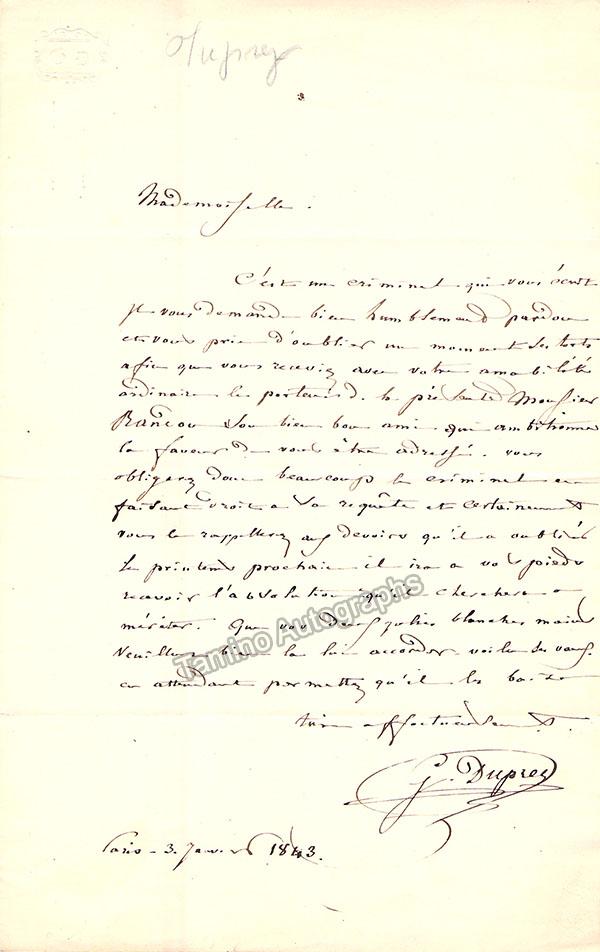 Duprez
Mademoiselle.
C'est un criminel qui vous écrit
il vous demande bien humblement pardon
et vous prie d'oublier un moment ses torts
afin que vous receviez avec votre amabilité
ordinaire le porteur de la présente Monsieur
son bien bon ami qui ambitionne
la faveur de vous être adressé. vous
obligerez donc beaucoup le criminel en
faisant droit a sa requête et certainement
vous le rappellerez aux devoirs qu'il a oubliés
Le printems prochain il ira a vos pieds
recevoir l'absolution qu'il cherchera a
mériter. Que vos deux jolies blanches mains
veuillent bien la lui accorder voila ses vœux
en attendant permettez qu'il les baise
très affectueusement.
G. Duprez
Paris - 3. Janvier 1843.
Tamino Autographs